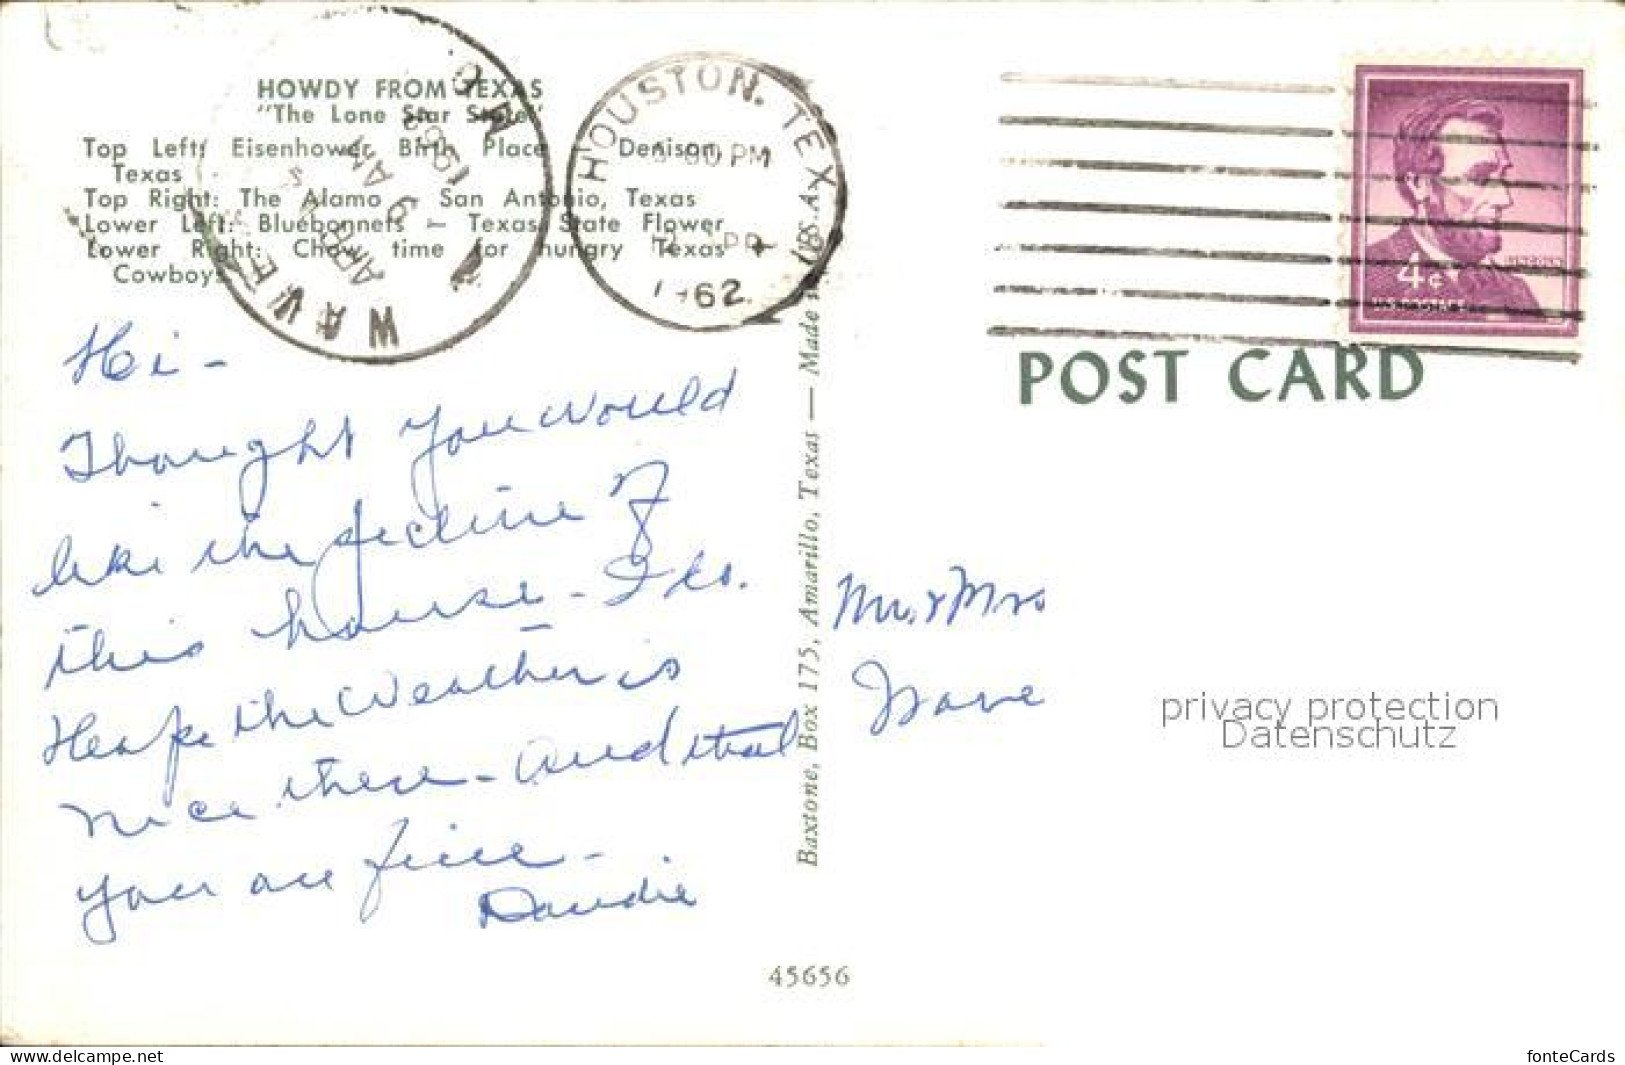 HOWDY FROM TEXAS
"The Lone Star State"
Top Left: Eisenhower Birth Place Denison,
Texas
Top Right: The Alamo - San Antonio, Texas
Lower Left: Bluebonnets - Texas State Flower
Lower Right: Chow time for hungry Texas
Cowboys
HOUSTON. TEX.
PM
1962
APR
9
AM
4¢
POST CARD
Hi -
Thought you would
like the
this house -
the Weather is
Nice there - and that
you are fine -
Mr. & Mrs
Baxtone, Box 175, Amarillo, Texas — Made in U.S.A.
privacy protection
Datenschutz
45656
www.delcampe.net
fonteCards